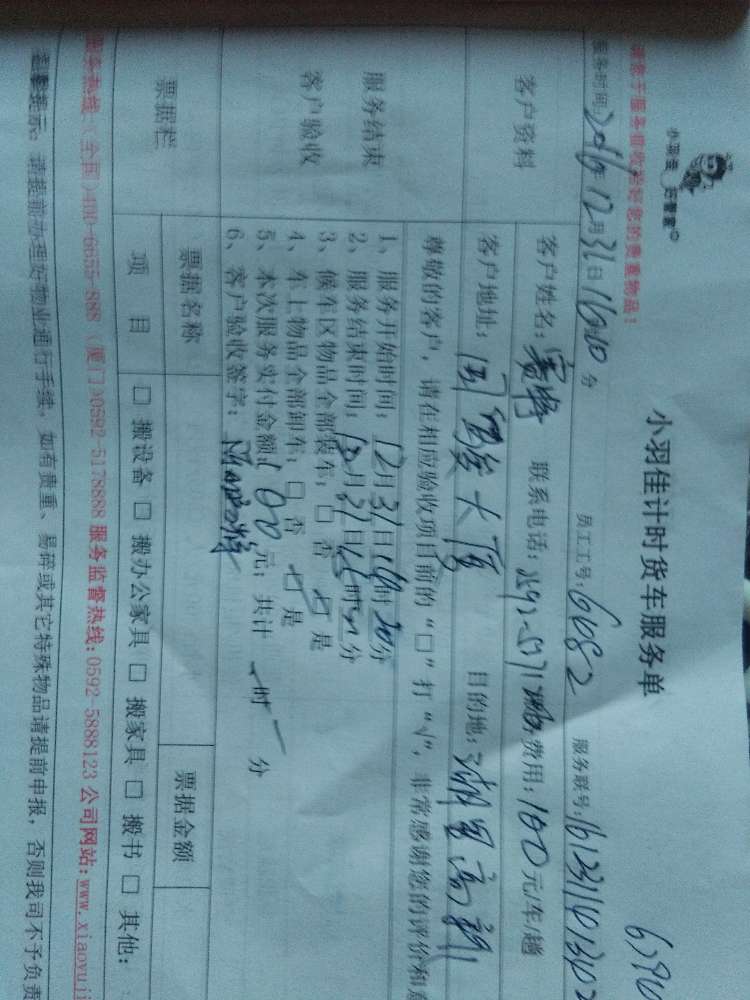 小羽佳 好管家
小羽佳计时货车服务单
请您于服务验收看好您的贵重物品！
服务时间：2016年12月31日16时00分 员工工号：6082 服务联号：1612311401302
客户资料
客户姓名： 联系电话： 费用：100元/车/趟
客户地址： 大厦 目的地：湖里高新
尊敬的客户，请在相应验收项目前的“□”打“√”，非常感谢您的评价和意
服务结束
客户验收
1、服务开始时间：12月31日 时 分
2、服务结束时间：12月31日 时 分
3、候车区物品全部装车：□否 □是
4、车上物品全部卸车：□否 □是
5、本次服务实付金额：100元；共计 时 分
6、客户验收签字：
票据栏
票据名称 票据金额
项目 □搬设备 □搬办公家具 □搬家具 □搬书 □其他：
服务热线：（全国）400-6655-888（厦门）0592-5178888 服务监督热线：0592-5888123 公司网站：www.xiaoyuji
温馨提示：请提前办理好物业通行手续，如有贵重、易碎或其它特殊物品请提前申报，否则我司不予负责